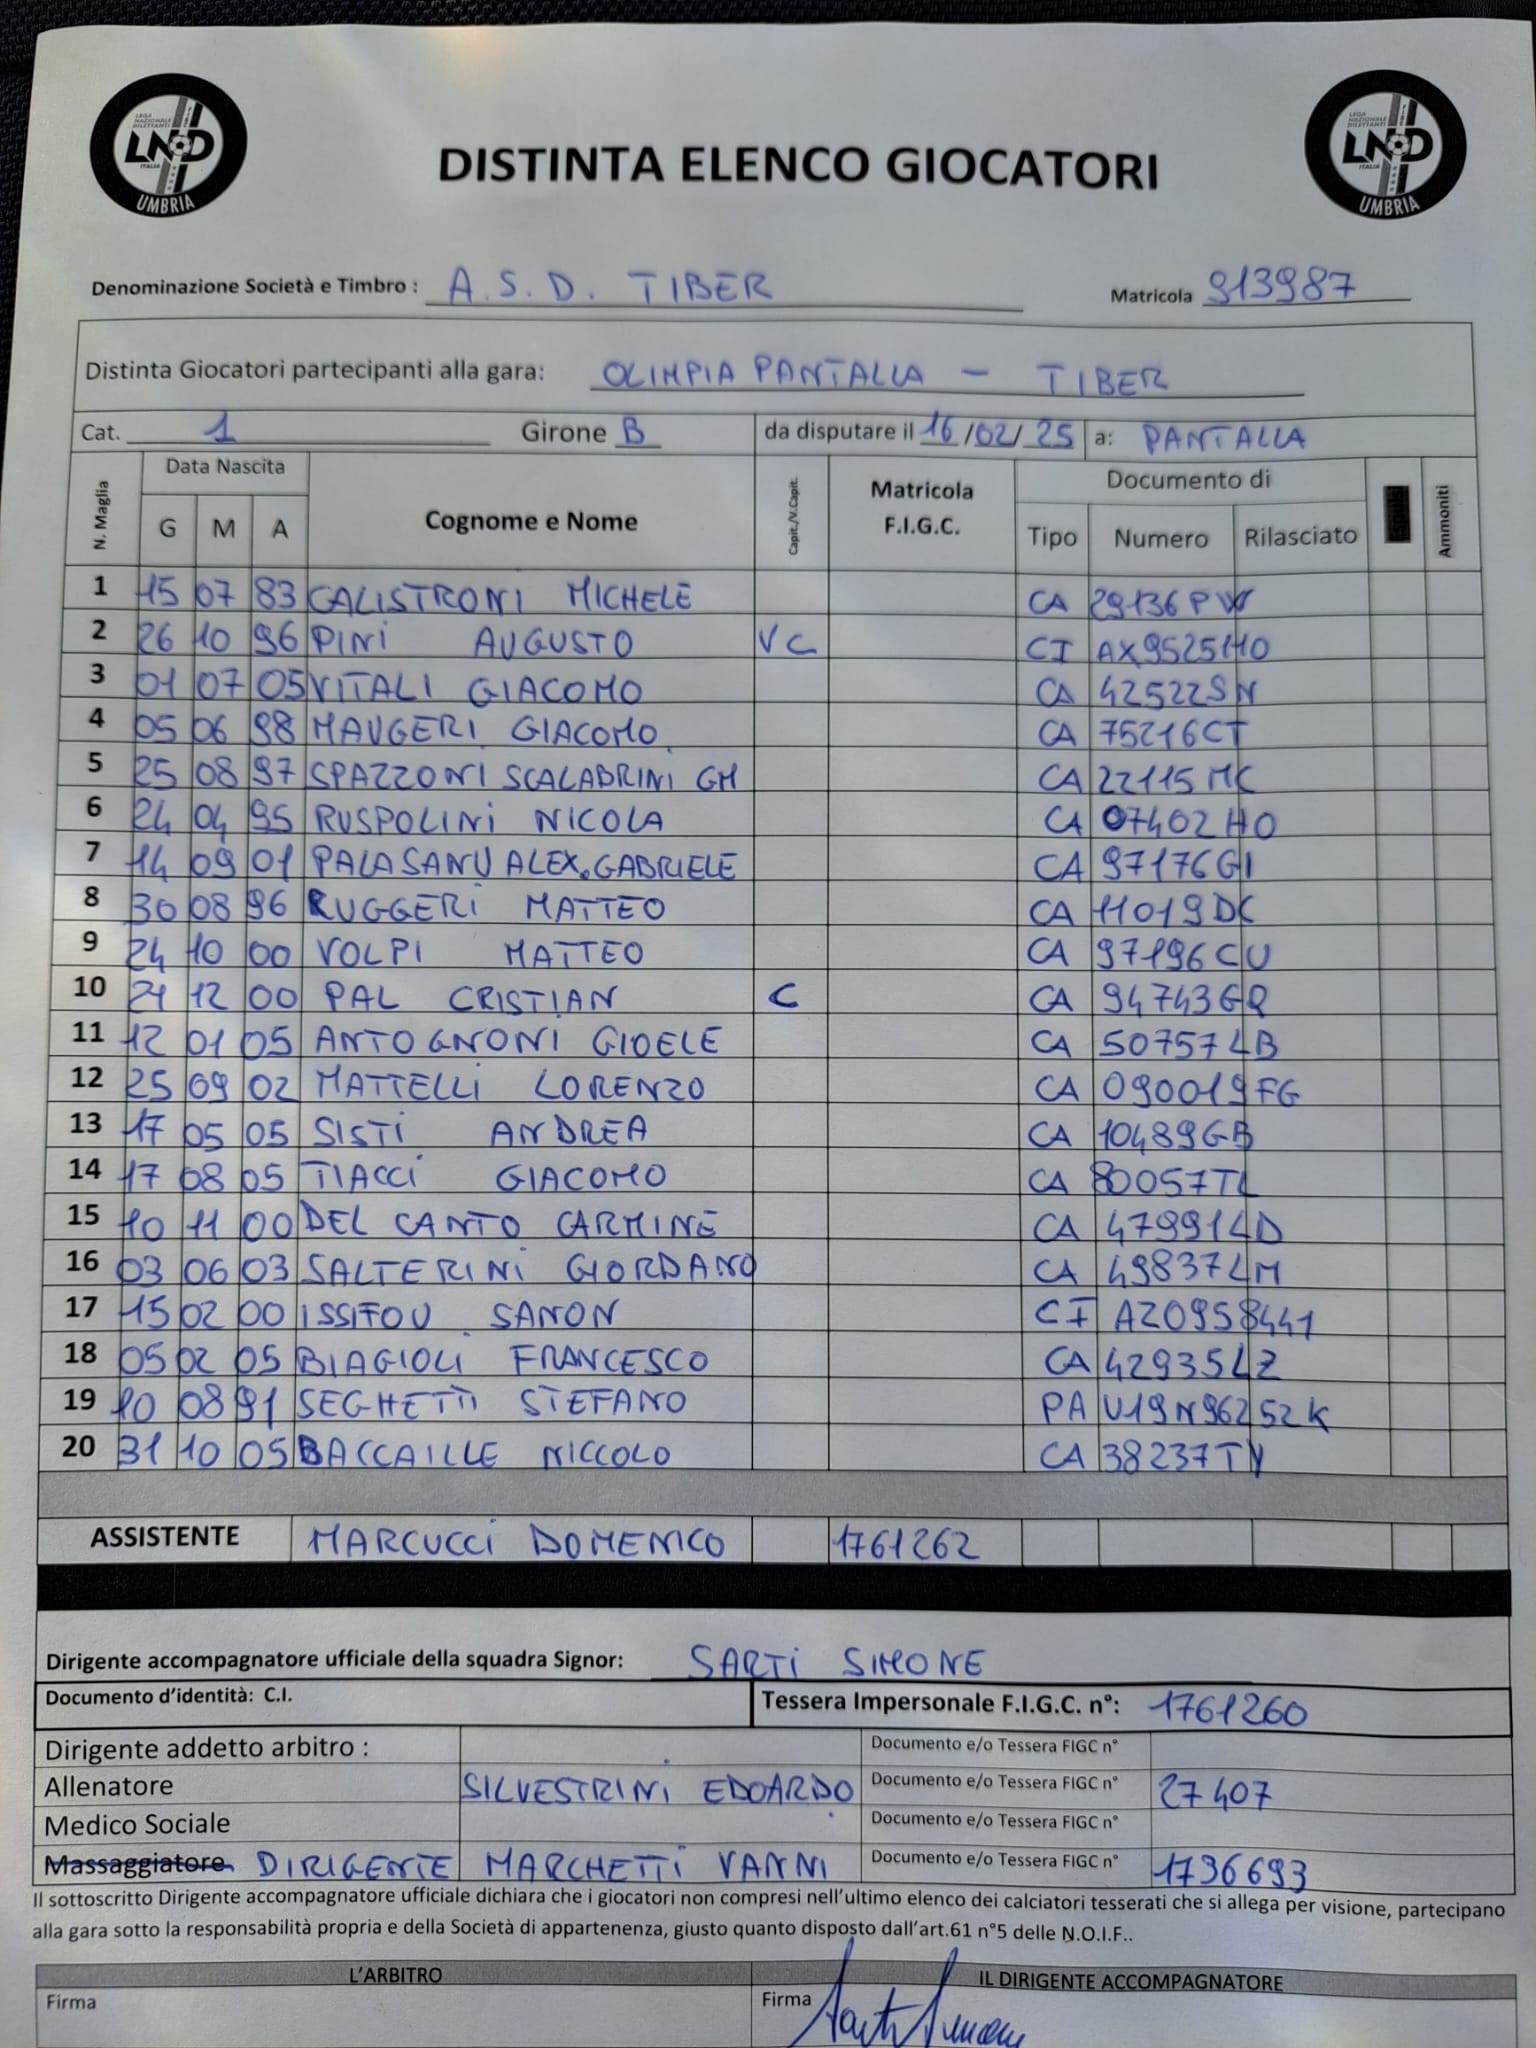 LEGA NAZIONALE DILETTANTI LND ITALIA UMBRIA
DISTINTA ELENCO GIOCATORI
LEGA NAZIONALE DILETTANTI LND ITALIA UMBRIA
Denominazione Società e Timbro : A.S.D. TIBER Matricola 913987
Distinta Giocatori partecipanti alla gara: OLIMPIA PANTALLA - TIBER
Cat. 1 Girone B da disputare il 16/02/25 a: PANTALLA
N. Maglia Data Nascita G M A Cognome e Nome Capit./V.Capit. Matricola F.I.G.C. Documento di Tipo Numero Rilasciato Ammoniti
1 15 07 83 CALISTRONI MICHELE CA 29136PW
2 26 10 96 PINI AUGUSTO VC CI AX9525110
3 01 07 05 VITALI GIACOMO CA 42522SN
4 05 06 98 MAUGERI GIACOMO CA 75216CT
5 25 08 97 SPAZZONI SCALABRINI GM CA 22115MC
6 24 04 95 RUSPOLINI NICOLA CA 07402HO
7 14 09 01 PALASANU ALEX.GABRIELE CA 97176GI
8 30 08 96 RUGGERI MATTEO CA 11019DC
9 24 10 00 VOLPI MATTEO CA 97196CU
10 21 12 00 PAL CRISTIAN C CA 94743GQ
11 12 01 05 ANTOGNONI GIOELE CA 50757LB
12 25 09 02 MATTELLI LORENZO CA 090019FG
13 17 05 05 SISTI ANDREA CA 10489GB
14 17 08 05 TIACCI GIACOMO CA 80057TL
15 10 11 00 DEL CANTO CARMINE CA 47991LD
16 03 06 03 SALTERINI GIORDANO CA 49837LM
17 15 02 00 ISSIFOU SANON CI AZ0958441
18 05 02 05 BIAGIOLI FRANCESCO CA 42935LZ
19 10 08 91 SEGHETTI STEFANO PA U19N96252K
20 31 10 05 BACCAILLE NICCOLO CA 38237TY
ASSISTENTE MARCUCCI DOMENICO 1761262
Dirigente accompagnatore ufficiale della squadra Signor: SARTI SIMONE
Documento d'identità: C.I. Tessera Impersonale F.I.G.C. n°: 1761260
Dirigente addetto arbitro : Documento e/o Tessera FIGC n°
Allenatore SILVESTRINI EDOARDO Documento e/o Tessera FIGC n° 27407
Medico Sociale Documento e/o Tessera FIGC n°
Massaggiatore DIRIGENTE MARCHETTI VANNI Documento e/o Tessera FIGC n° 1796693
Il sottoscritto Dirigente accompagnatore ufficiale dichiara che i giocatori non compresi nell'ultimo elenco dei calciatori tesserati che si allega per visione, partecipano
alla gara sotto la responsabilità propria e della Società di appartenenza, giusto quanto disposto dall'art.61 n°5 delle N.O.I.F..
L'ARBITRO IL DIRIGENTE ACCOMPAGNATORE
Firma Firma Sarti Simone